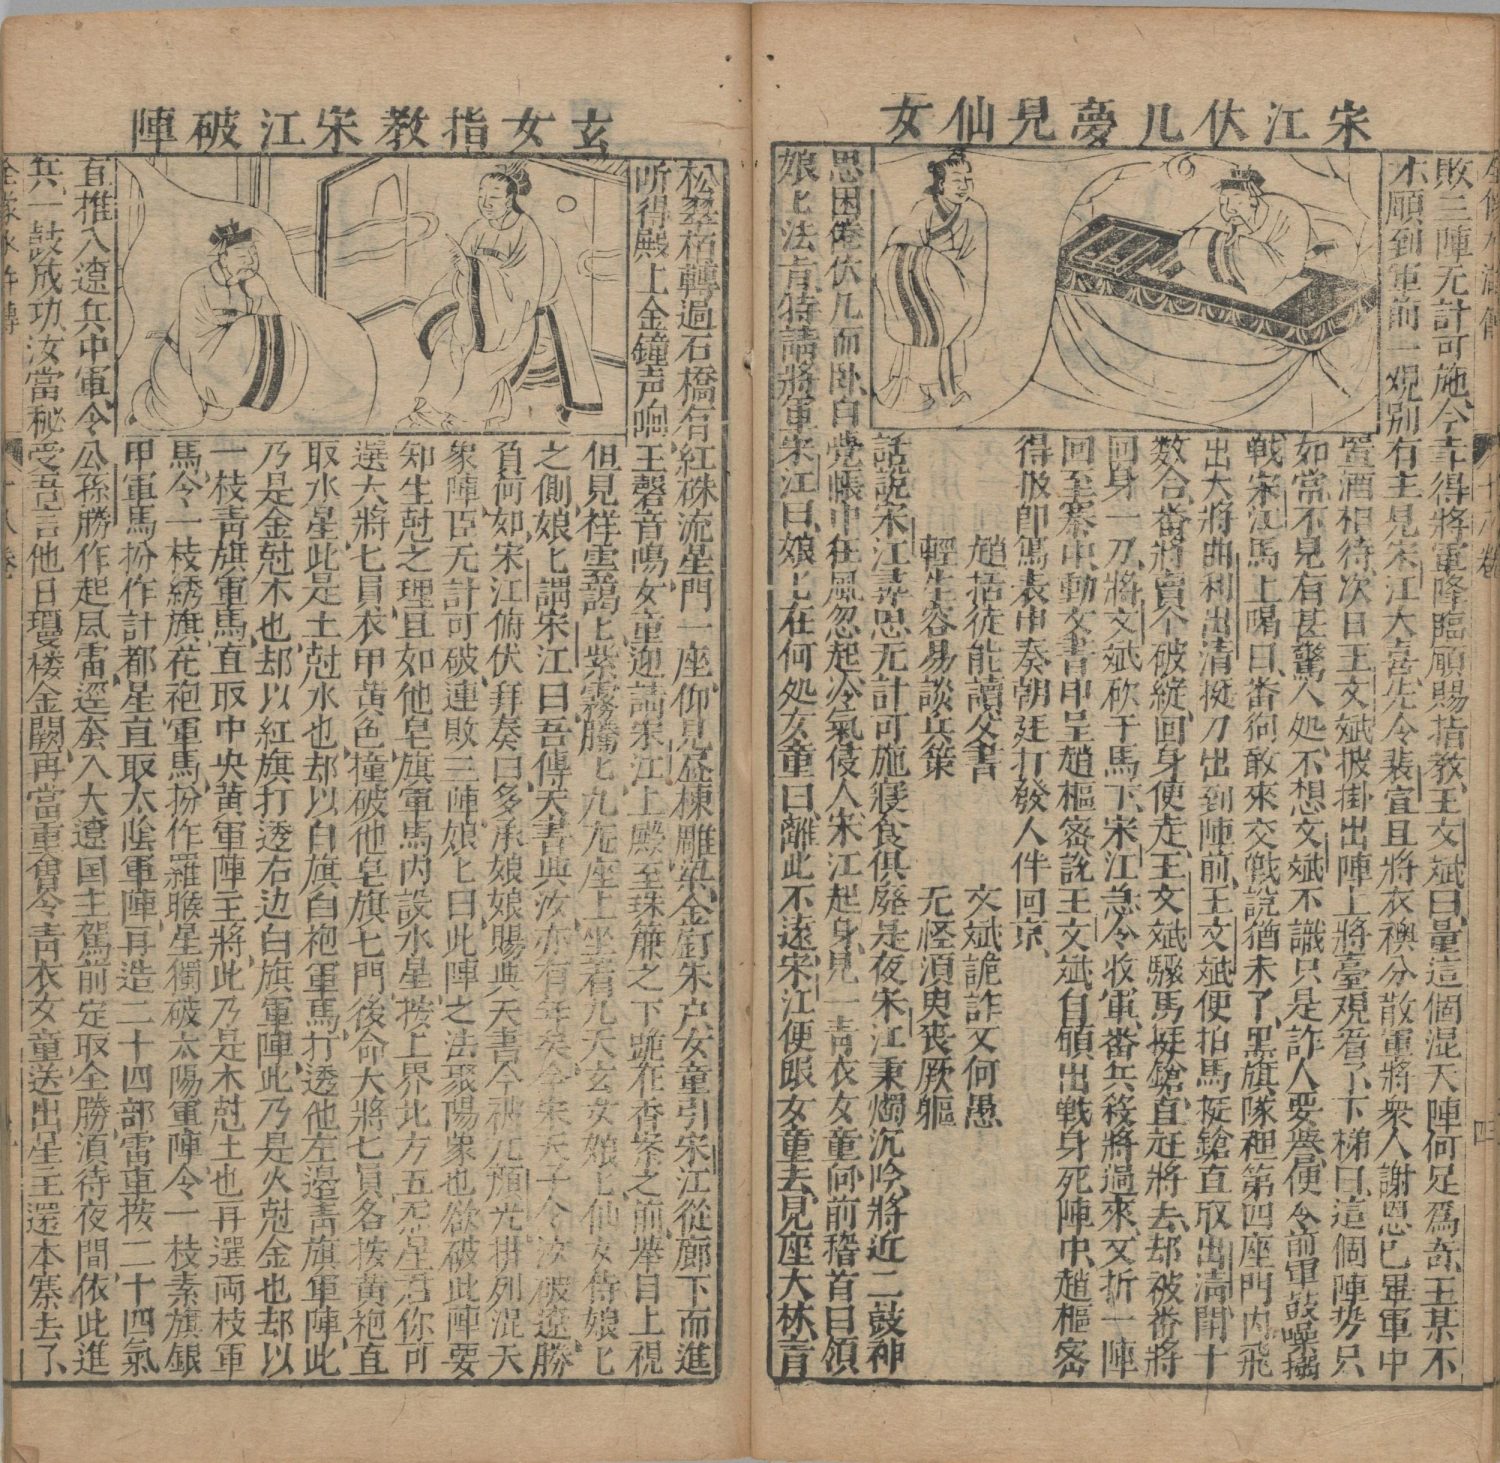 宋江伏几夢見仙女
敗三陣无計可施今幸得將軍降臨願賜指教王文斌曰量這個混天陣何足爲奇王某不
才願到軍前一觀別有主見宋江大喜先令裴宣且將衣襖分散軍將衆人謝恩已畢軍中
置酒相待次日王文斌披掛出陣上將臺觀看了下梯曰這個陣势只
如常不見有甚驚人処不想文斌不識只是詐人要譽便令前軍鼓噪搦
戰宋江馬上喝曰番狗敢來交戰說猶未了黑旗隊裡第四座門内飛
出大將曲利出清挺刀出到陣前王文斌便拍馬挺鎗直取出清閗十
数合番將賣个破綻回身便走王文斌驟馬挺鎗直赶將去却被番將
回身一刀將文斌砍于馬下宋江急令收軍番兵殺將過來又折一陣
回至寨中動文書申呈趙樞密說王文斌自願出戰身死陣中趙樞密
得报即寫表申奏朝廷打發人伴回京
趙括徒能讀父書 文斌詭詐又何愚
輕生容易談兵策 无怪湏臾喪厥軀
話說宋江尋思无計可施寢食俱廢是夜宋江秉燭沉吟將近二鼓神
思困倦伏几而卧自覺帳中狂風忽起冷氣侵人宋江起身見一青衣女童向前稽首曰領
娘匕法旨特請將軍宋江曰娘匕在何処女童曰離此不遠宋江便跟女童去見座大林青
玄女指教宋江破陣
松翠栢轉過石橋有紅硃流星門一座仰見盈棟雕梁金釘朱户女童引宋江從廊下而進
听得殿上金鐘声响玉磬音鳴女童迎請宋江上殿至珠簾之下跪在香案之前舉目上視
但見祥雲靄匕紫霧騰匕九龙座上坐着九天玄女娘匕仙女侍娘匕
之側娘匕謂宋江曰吾傳天書與汝亦有年矣今宋天子令汝破遼勝
負何如宋江俯伏拜奏曰多承娘娘賜與天書今被兀顔光排列混天
象陣臣无計可破連敗三陣娘匕曰此陣之法聚陽象也欲破此陣要
知生尅之理且如他皂旗軍馬内設水星按上界北方五炁星君你可
選大將七員衣甲黄色撞破他皂旗七門後命大將七員各披黄袍直
取水星此是土尅水也却以白旗白袍軍馬打透他左邉青旗軍陣此
乃是金尅木也却以紅旗打透右边白旗軍陣此乃是火尅金也却以
一枝青旗軍馬直取中央黄軍陣主將此乃是木尅土也再選両枝軍
馬令一枝綉旗花袍軍馬扮作羅睺星獨破太陽軍陣令一枝素旗銀
甲軍馬扮作計都星直取太陰軍陣再造二十四部雷車按二十四氣
直推入遼兵中軍令公孫勝作起風雷逕奔入大遼国主駕前定取全勝湏待夜間依此進
兵一鼓成功汝當秘受吾言他日瓊楼金闕再當重會令青衣女童送出星主還本寨去了
全像水滸傳 十八卷